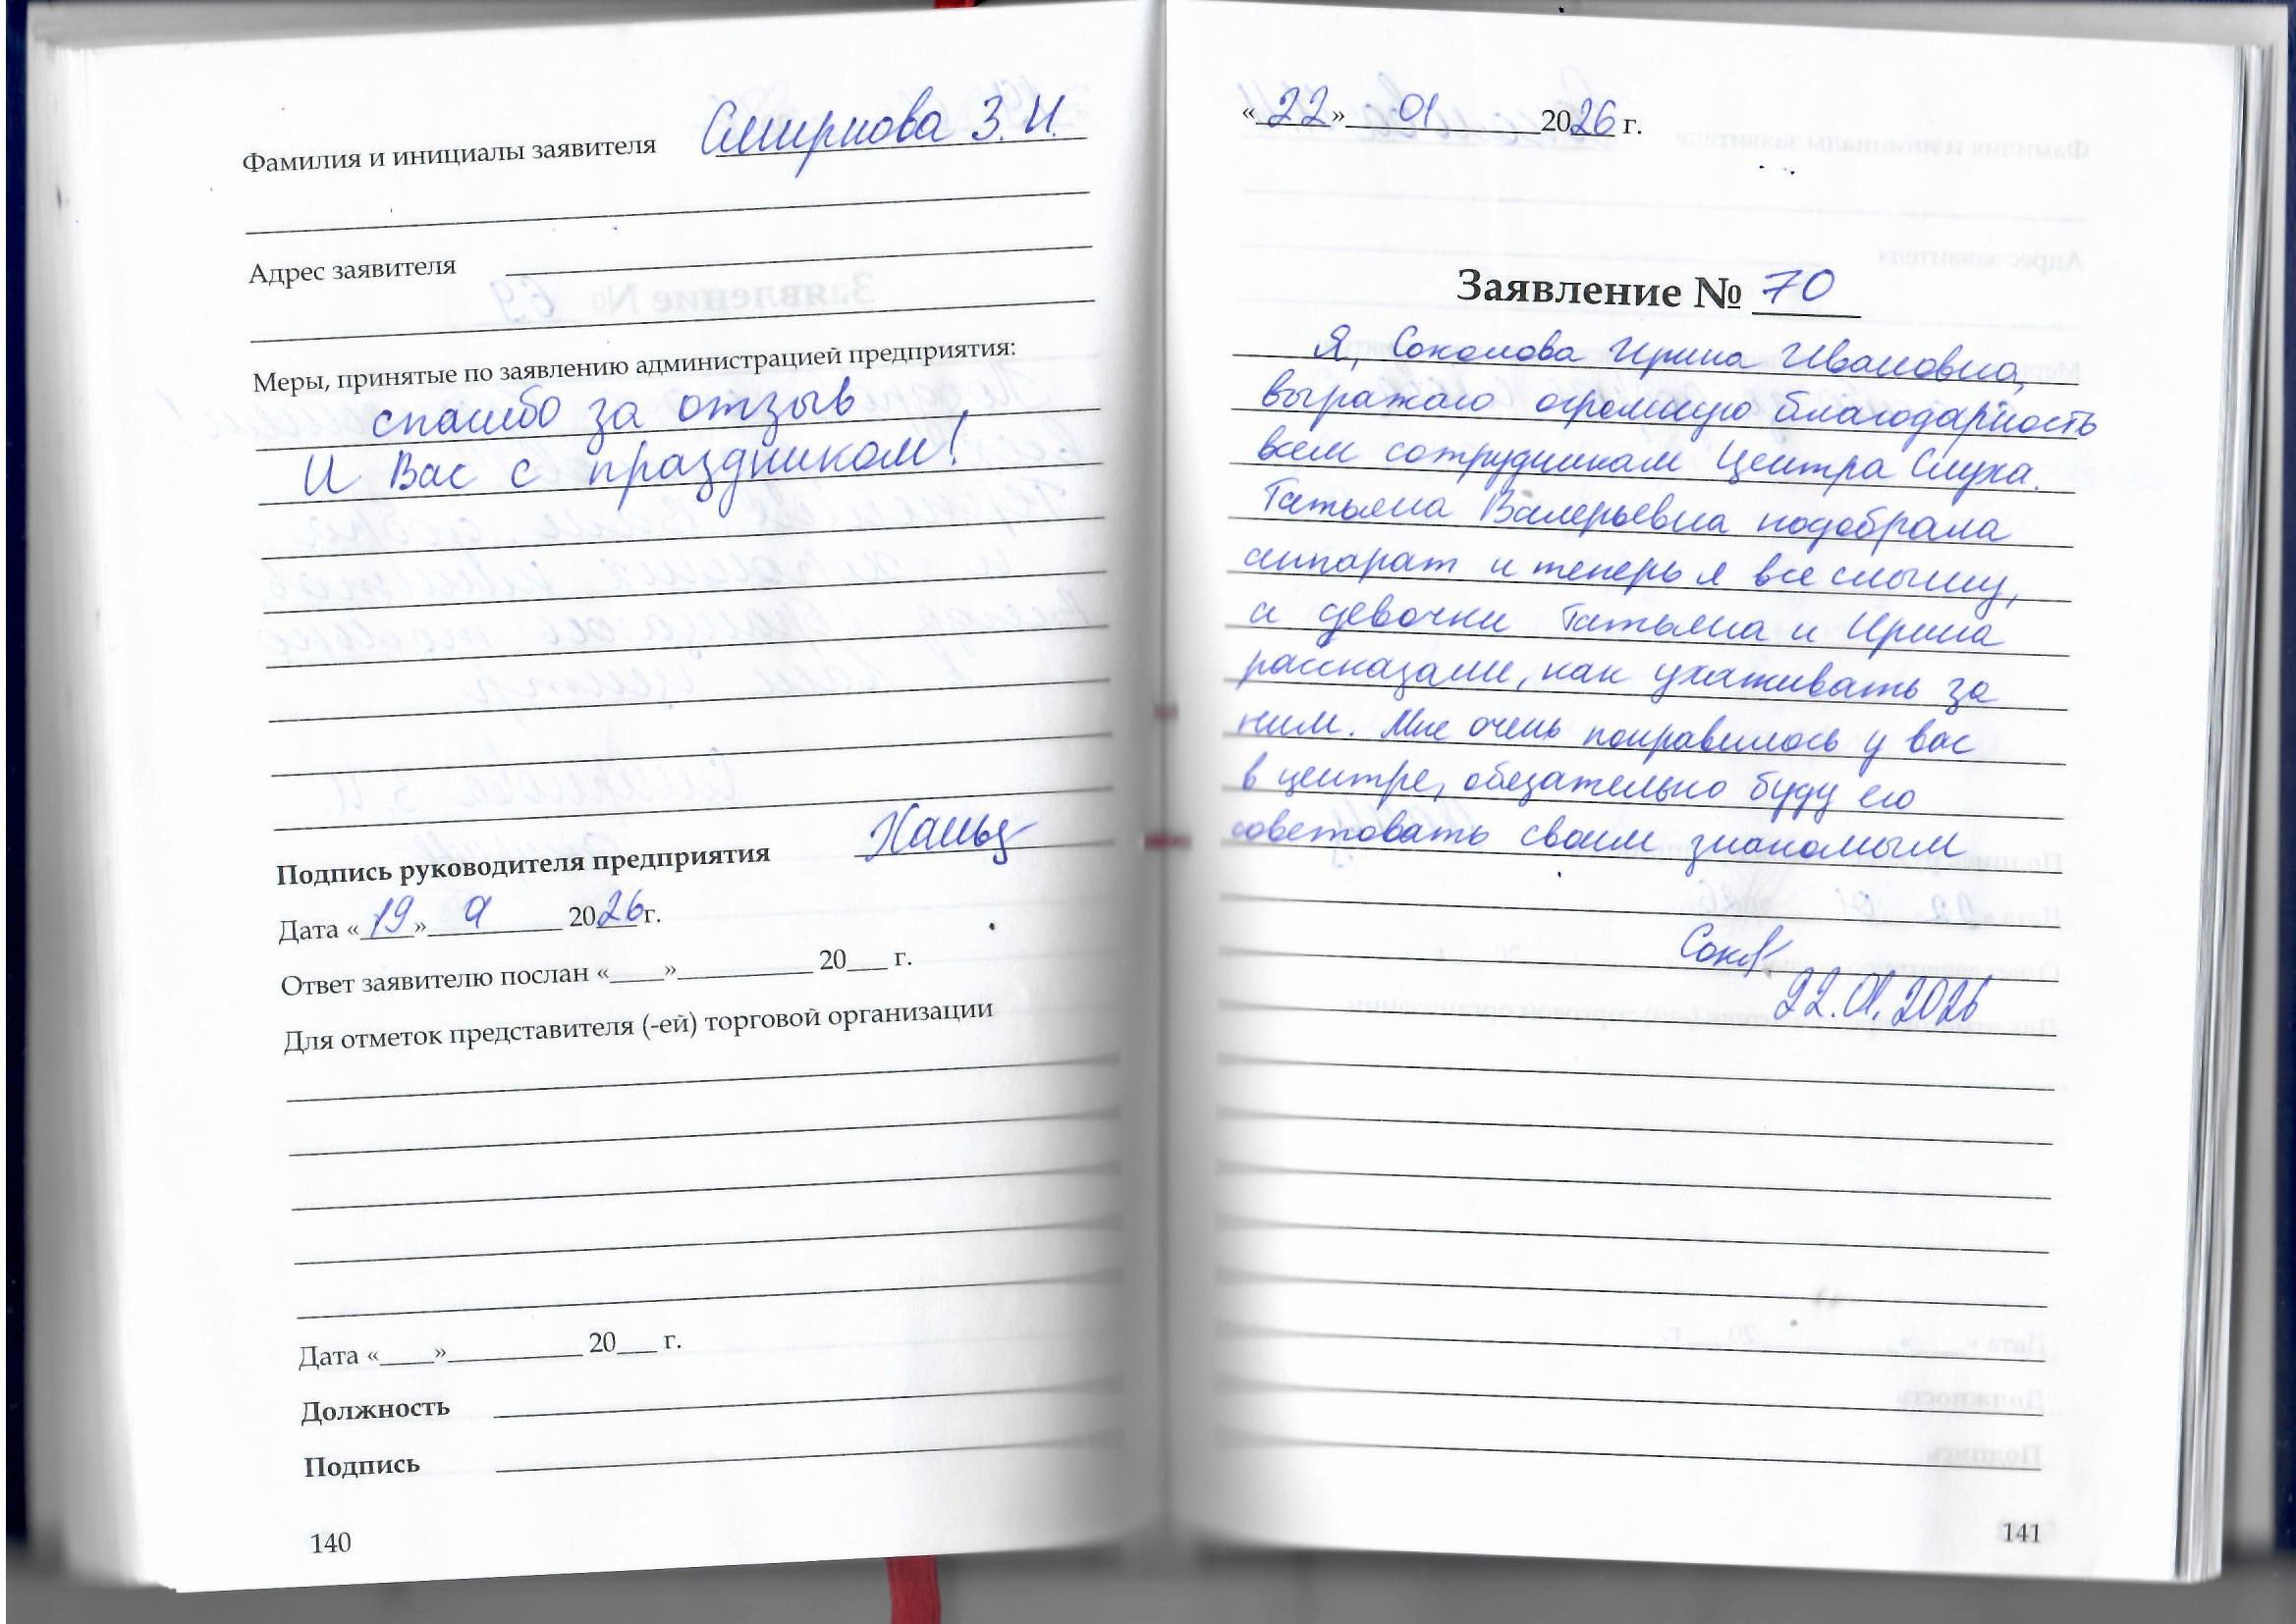 Фамилия и инициалы заявителя Смирнова З. И.
Адрес заявителя
Меры, принятые по заявлению администрацией предприятия:
спасибо за отзыв
И Вас с праздником!
Подпись руководителя предприятия
Дата «19» 01 2026 г.
Ответ заявителю послан «____»__________ 20___ г.
Для отметок представителя (-ей) торговой организации
Дата «____»__________ 20___ г.
Должность
Подпись
140
«22» 01 2026 г.
Заявление № 70
Я, Соколова Ирина Ивановна,
выражаю огромную благодарность
всем сотрудникам Центра Слуха.
Татьяна Валерьевна подобрала
аппарат и теперь я все слышу,
а девочки Татьяна и Ирина
рассказали, как ухаживать за
ним. Мне очень понравилось у вас
в центре, обязательно буду его
советовать своим знакомым
22.01.2026
141